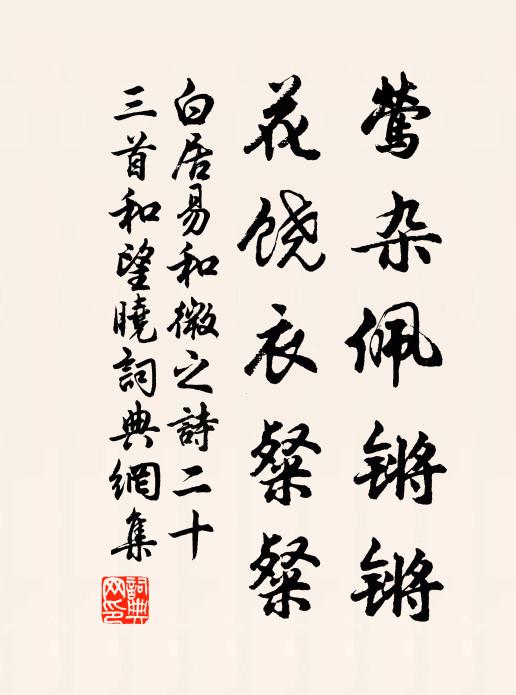 莺杂佩锵锵
花饶衣粲粲
白居易和微之詩二十
三首和望曉詞典網集
詞典網印